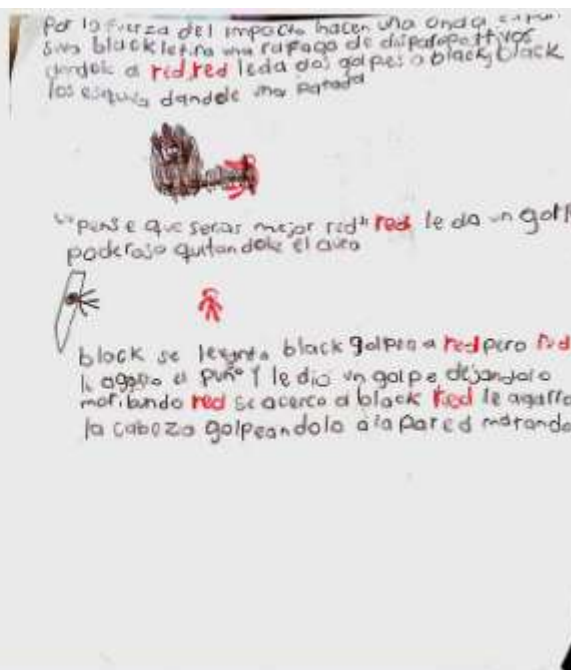 Por la fuerza del impacto hacen una onda
siva black le tira una rafaga de
dandole a red, red le da dos golpes a black, black
los esquiva dandole una patada
"pense que serias mejor red" red le da un golpe
poderoso quitandole el aura
black se levanta black golpea a red pero red
le agarro el puño Y le dio un golpe dejandolo
moribundo red se acerco a black red le agarro
la cabeza golpeandolo a la pared matando